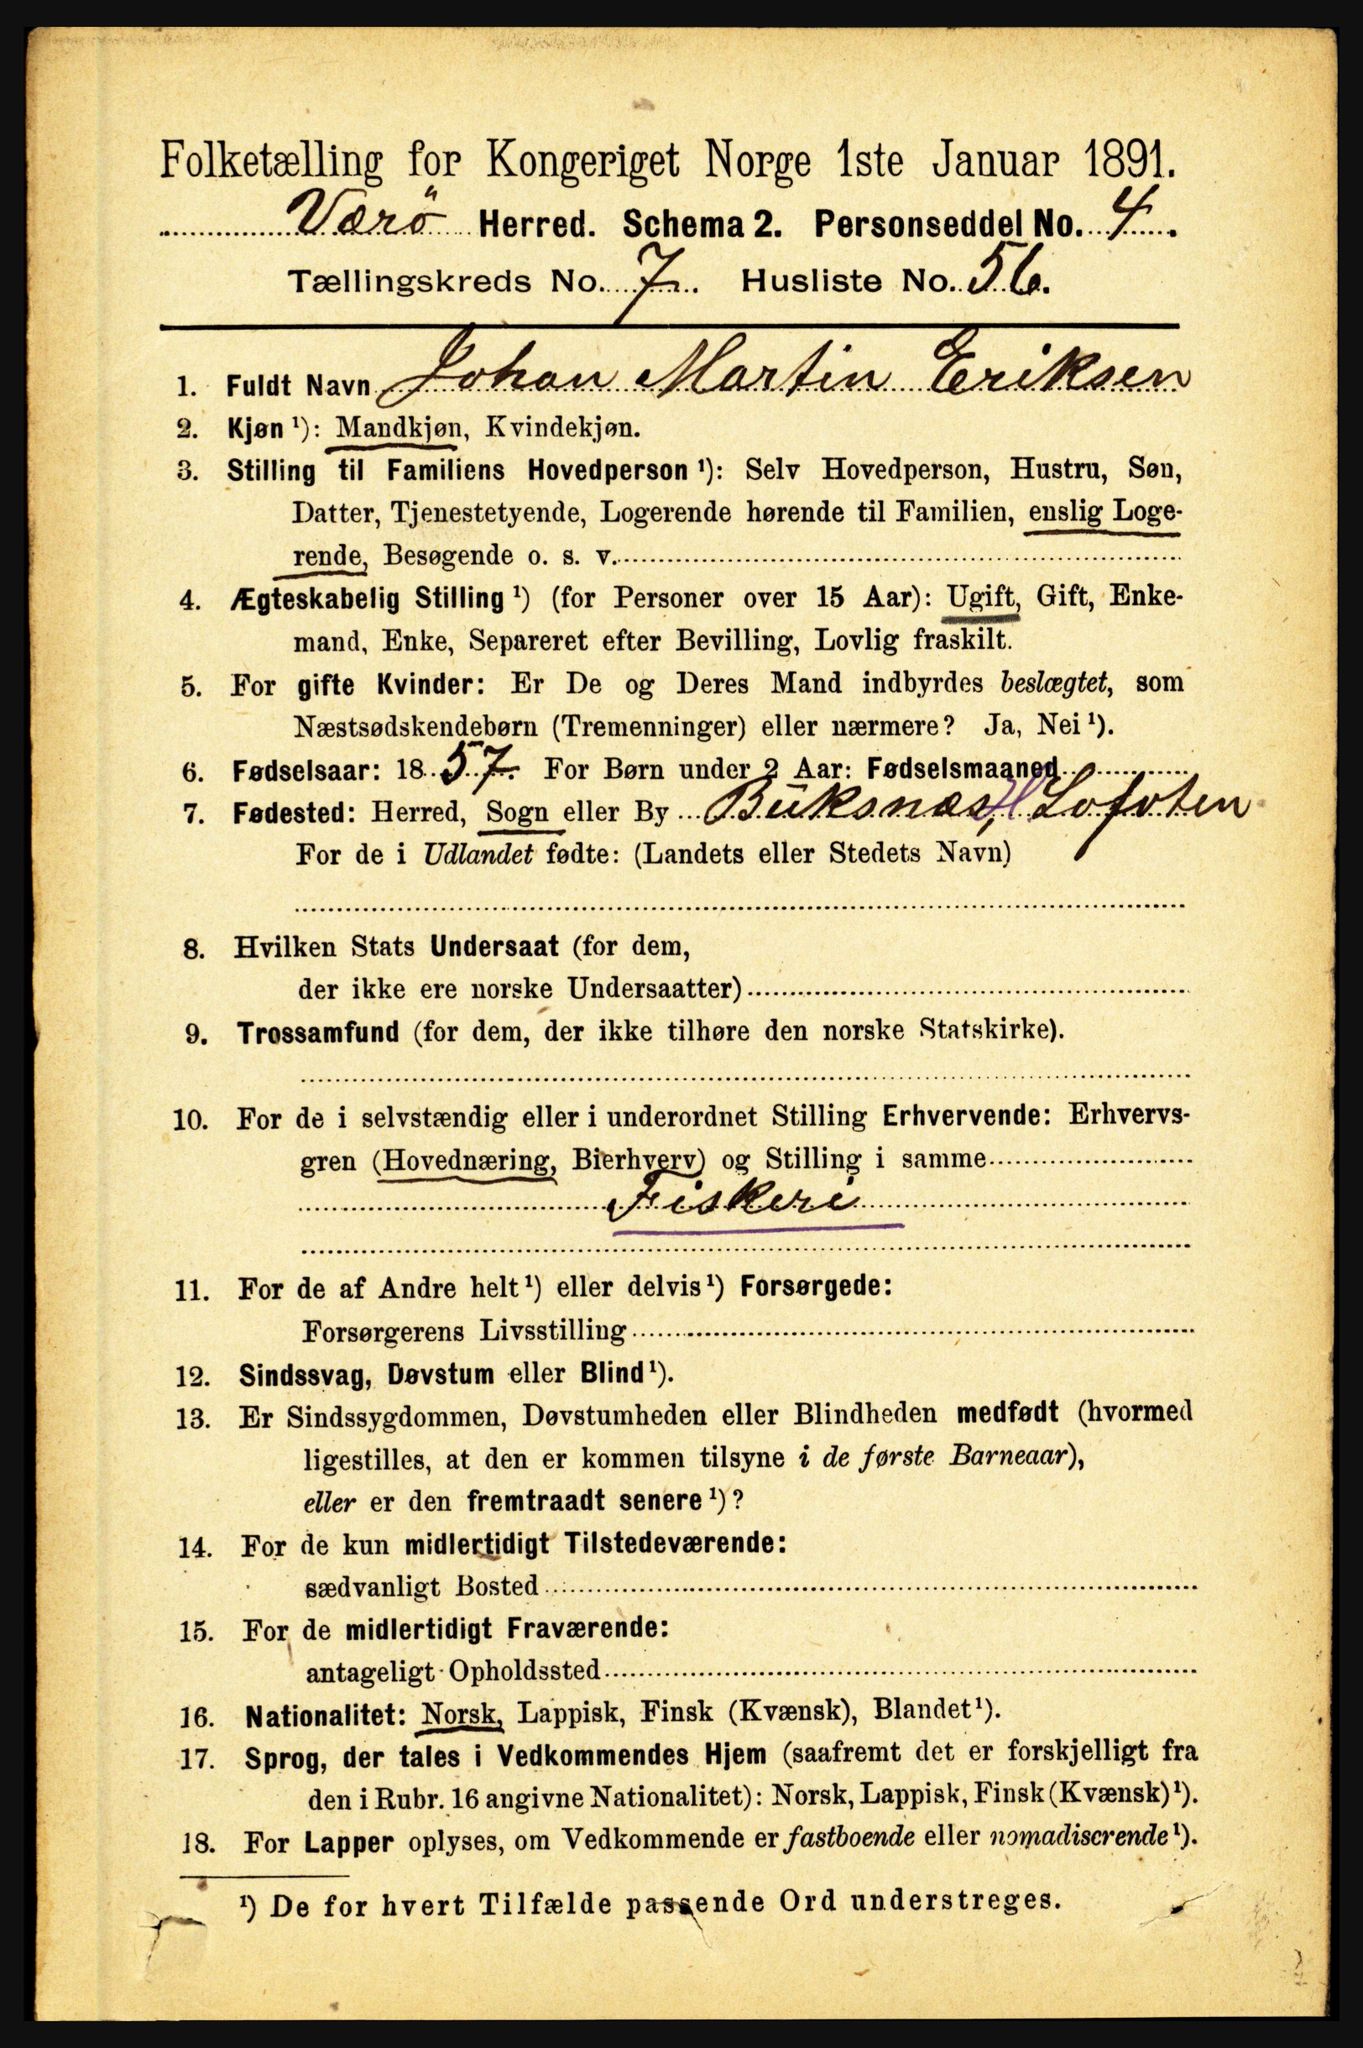 Folketælling for Kongeriget Norge 1ste Januar 1891.
Værö Herred. Schema 2. Personseddel No. 4.
Tællingskreds No. 7. Husliste No. 56.
1. Fuldt Navn Johan Martin Eriksen
2. Kjøn ¹): Mandkjøn, Kvindekjøn.
3. Stilling til Familiens Hovedperson ¹): Selv Hovedperson, Hustru, Søn,
Datter, Tjenestetyende, Logerende hørende til Familien, enslig Loge-
rende, Besøgende o. s. v.
4. Ægteskabelig Stilling ¹) (for Personer over 15 Aar): Ugift, Gift, Enke-
mand, Enke, Separeret efter Bevilling, Lovlig fraskilt.
5. For gifte Kvinder: Er De og Deres Mand indbyrdes beslægtet, som
Næstsødskendebørn (Tremenninger) eller nærmere? Ja, Nei ¹).
6. Fødselsaar: 1857. For Børn under 2 Aar: Fødselsmaaned
7. Fødested: Herred, Sogn eller By Buksnæs, Lofoten
For de i Udlandet fødte: (Landets eller Stedets Navn)
8. Hvilken Stats Undersaat (for dem,
der ikke ere norske Undersaatter)
9. Trossamfund (for dem, der ikke tilhøre den norske Statskirke).
10. For de i selvstændig eller i underordnet Stilling Erhvervende: Erhvervs-
gren (Hovednæring, Bierhverv) og Stilling i samme
Fiskeri
11. For de af Andre helt ¹) eller delvis ¹) Forsørgede:
Forsørgerens Livsstilling
12. Sindssvag, Døvstum eller Blind ¹).
13. Er Sindssygdommen, Døvstumheden eller Blindheden medfødt (hvormed
ligestilles, at den er kommen tilsyne i de første Barneaar),
eller er den fremtraadt senere ¹)?
14. For de kun midlertidigt Tilstedeværende:
sædvanligt Bosted
15. For de midlertidigt Fraværende:
antageligt Opholdssted
16. Nationalitet: Norsk, Lappisk, Finsk (Kvænsk), Blandet ¹).
17. Sprog, der tales i Vedkommendes Hjem (saafremt det er forskjelligt fra
den i Rubr. 16 angivne Nationalitet): Norsk, Lappisk, Finsk (Kvænsk) ¹).
18. For Lapper oplyses, om Vedkommende er fastboende eller nomadiserende ¹).
¹) De for hvert Tilfælde passende Ord understreges.